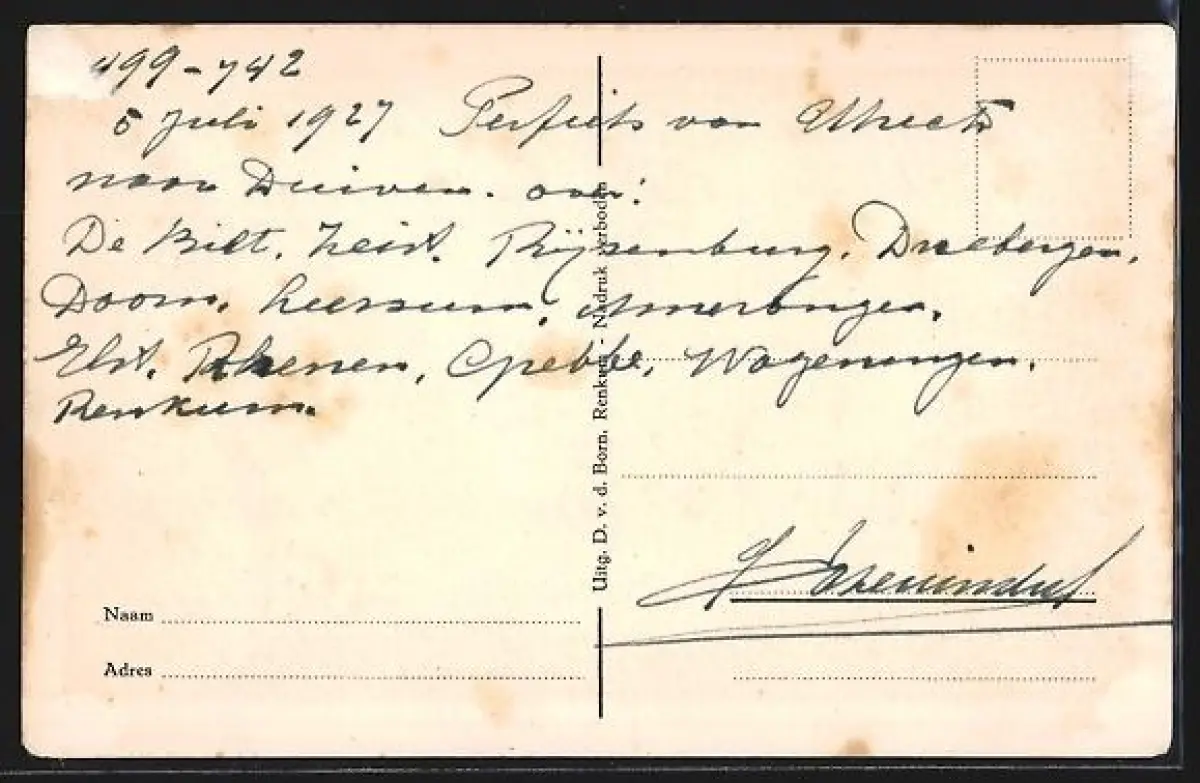 499-742
5 Juli 1927 Perfiets van Utrecht
naar Duiven. over:
De Bilt. Zeist. Rijsenburg. Driebergen.
Doorn. Leersum. Amerongen.
Elst. Rhenen, Grebbe, Wageningen.
Renkum.
Uitg. D. v. d. Born, Renkum - Nadruk verboden
Naam
Adres